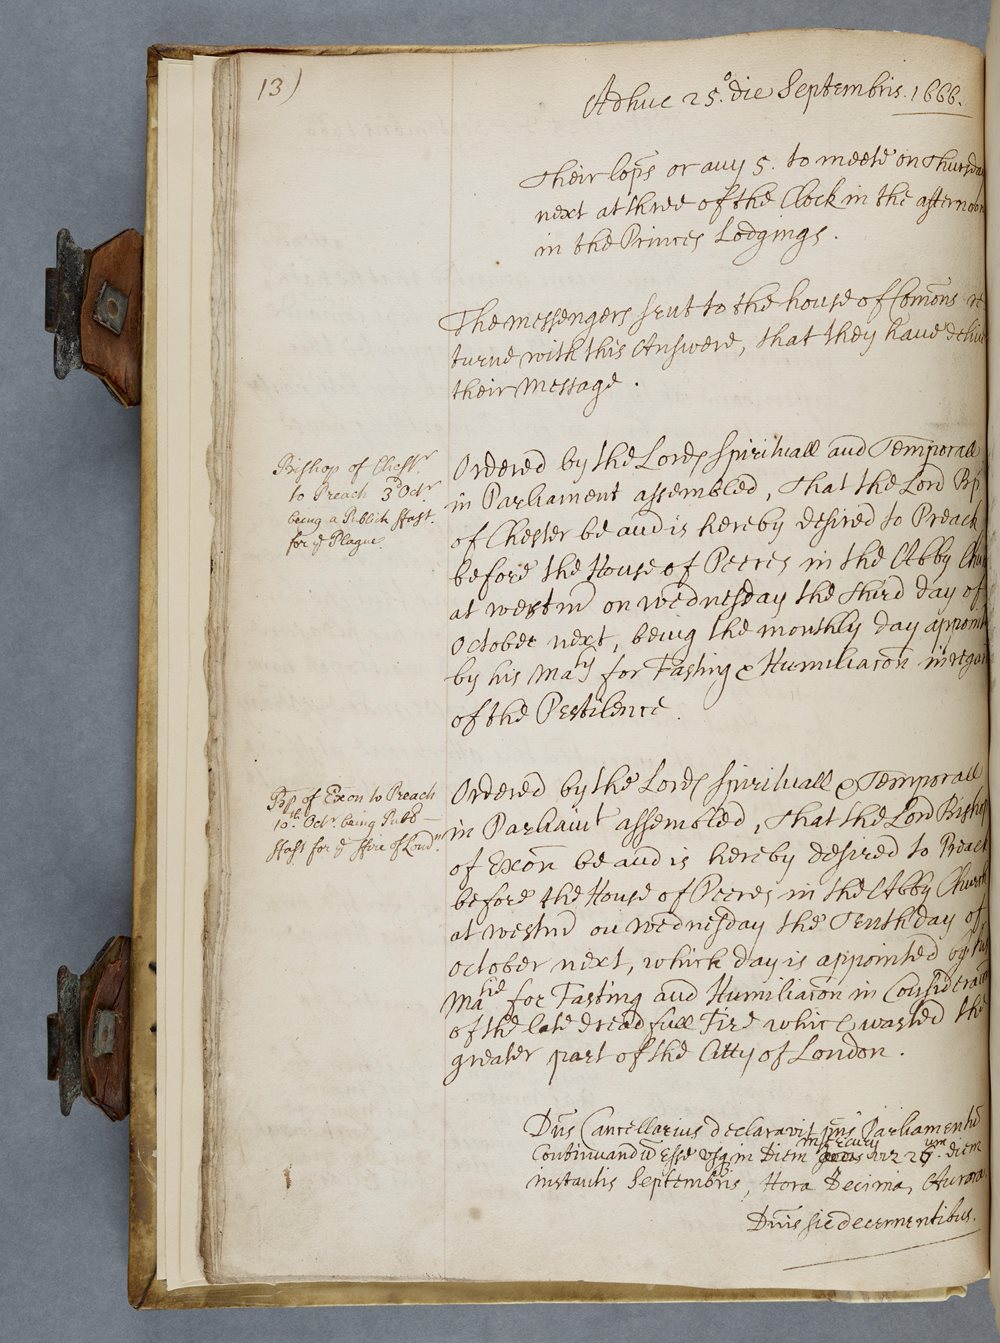 13)
Adhuc 25.º die Septembris. 1666.
Their lops or any 5. to meete on Thursday
next at three of the Clock in the afternoon
in the Princes Lodgings.
The messengers sent to the house of Comōns re
turne with this Answere, that they have deliv
their Message.
Bishop of Chestr
to Preach 3d Octr
being a Publick ffast
for ye Plague.
Ordered by the Lords Spirituall and Temporall
in Parliament assembled, That the Lord Bp
of Chester be and is hereby desired to Preach
before the House of Peeres in the Abby Chur
at Westmr on Wednesday the third day of
October next, being the monthly day appoint
by his Maty for Fasting & Humiliacōn in regar
of the Pestilence.
Bp of Exon to Preach
10th Octr being Publ—
ffast for ye ffire of Londn
Ordered by the Lords Spirituall & Temporall
in Parliamt assembled, That the Lord Bishop
of Exōn be and is hereby desired to Preach
before the House of Peeres in the Abby Church
at Westmr on Wednesday the Tenth day of
October next, which day is appointed by his
Matie for Fasting and Humiliacōn in Consideracōn
of the late dreadfull Fire which wasted the
greater part of the Citty of London.
Dn̄s Cancellarius declaravit p̄ns Parliamentū
Continuandū Esse usq in Diem Mercurij viz 26um. diem
instantis Septembris, Hora Decima, Aurora
Dn̄is sic decernentibus.